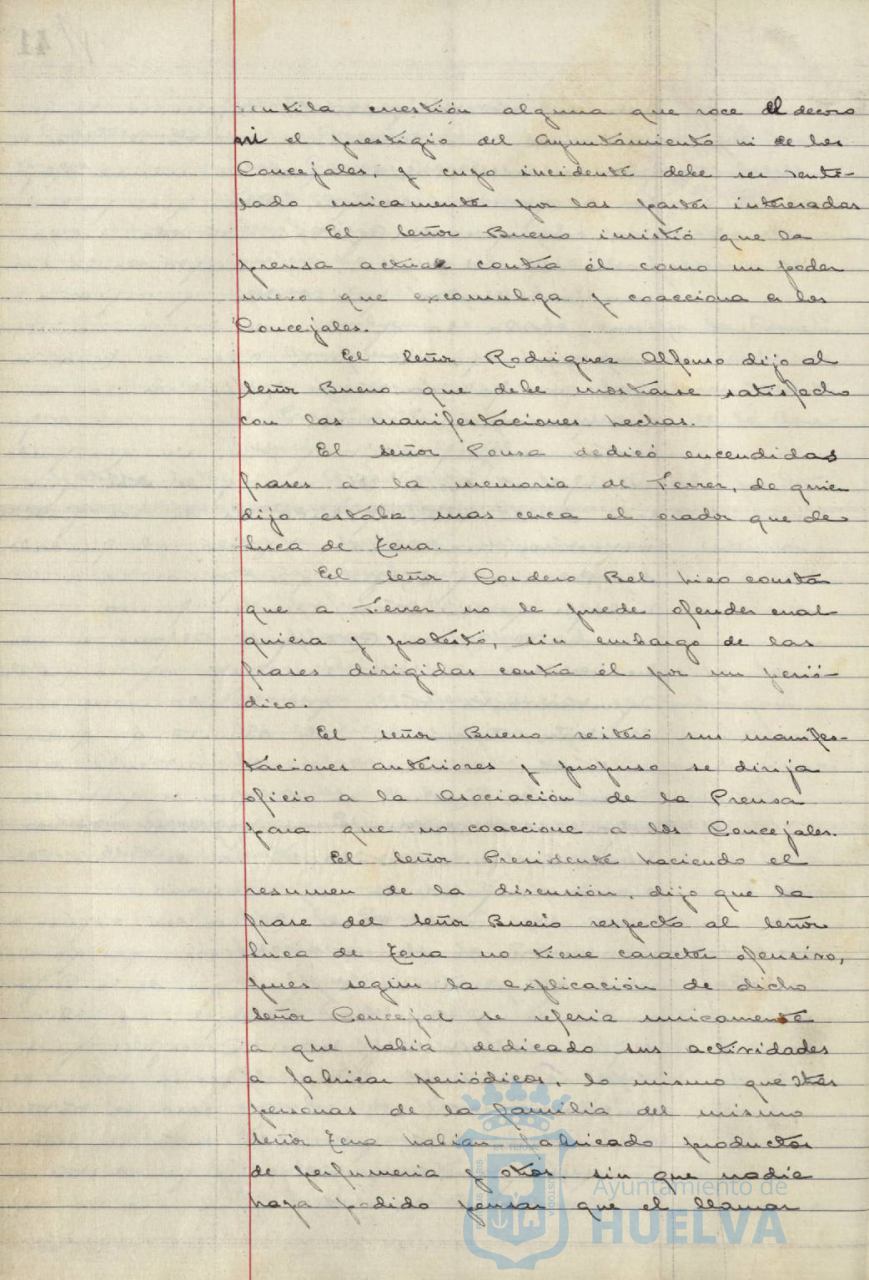 cuestión alguna que roce el decoro
ni el prestigio del Ayuntamiento ni de los
Concejales, y cuyo incidente debe ser venti-
lado unicamente por las partes interesadas
El Señor Bueno insistió que la
prensa actúe contra él como un poder
nuevo que excomulga y coacciona a los
Concejales.
El Señor Rodriguez Alfonso dijo al
Señor Bueno que debe mostrarse satisfecho
con las manifestaciones hechas.
El señor Ponsa dedicó encendidas
frases a la memoria de Ferrer, de quien
dijo estaba mas cerca el orador que de
Luca de Tena.
El señor Cordero Bel hizo constar
que a Ferrer no le puede ofender cual
quiera y protestó, sin embargo de las
frases dirigidas contra él por un perió-
dico.
El señor Bueno reiteró sus manifes-
taciones anteriores y propuso se dirija
oficio a la Asociación de la Prensa
para que no coaccione a los Concejales.
El Señor Presidente haciendo el
resumen de la discusión, dijo que la
frase del Señor Bueno respecto al Señor
Luca de Tena no tiene caracter ofensivo,
pues según la explicación de dicho
Señor Concejal se referia unicamente
a que habia dedicado sus actividades
a fabricar periódicos, lo mismo que otras
personas de la familia del mismo
señor Tena habian fabricado productos
de perfumeria y otros, sin que nadie
haya podido pensar que el llamar
Ayuntamiento de
HUELVA